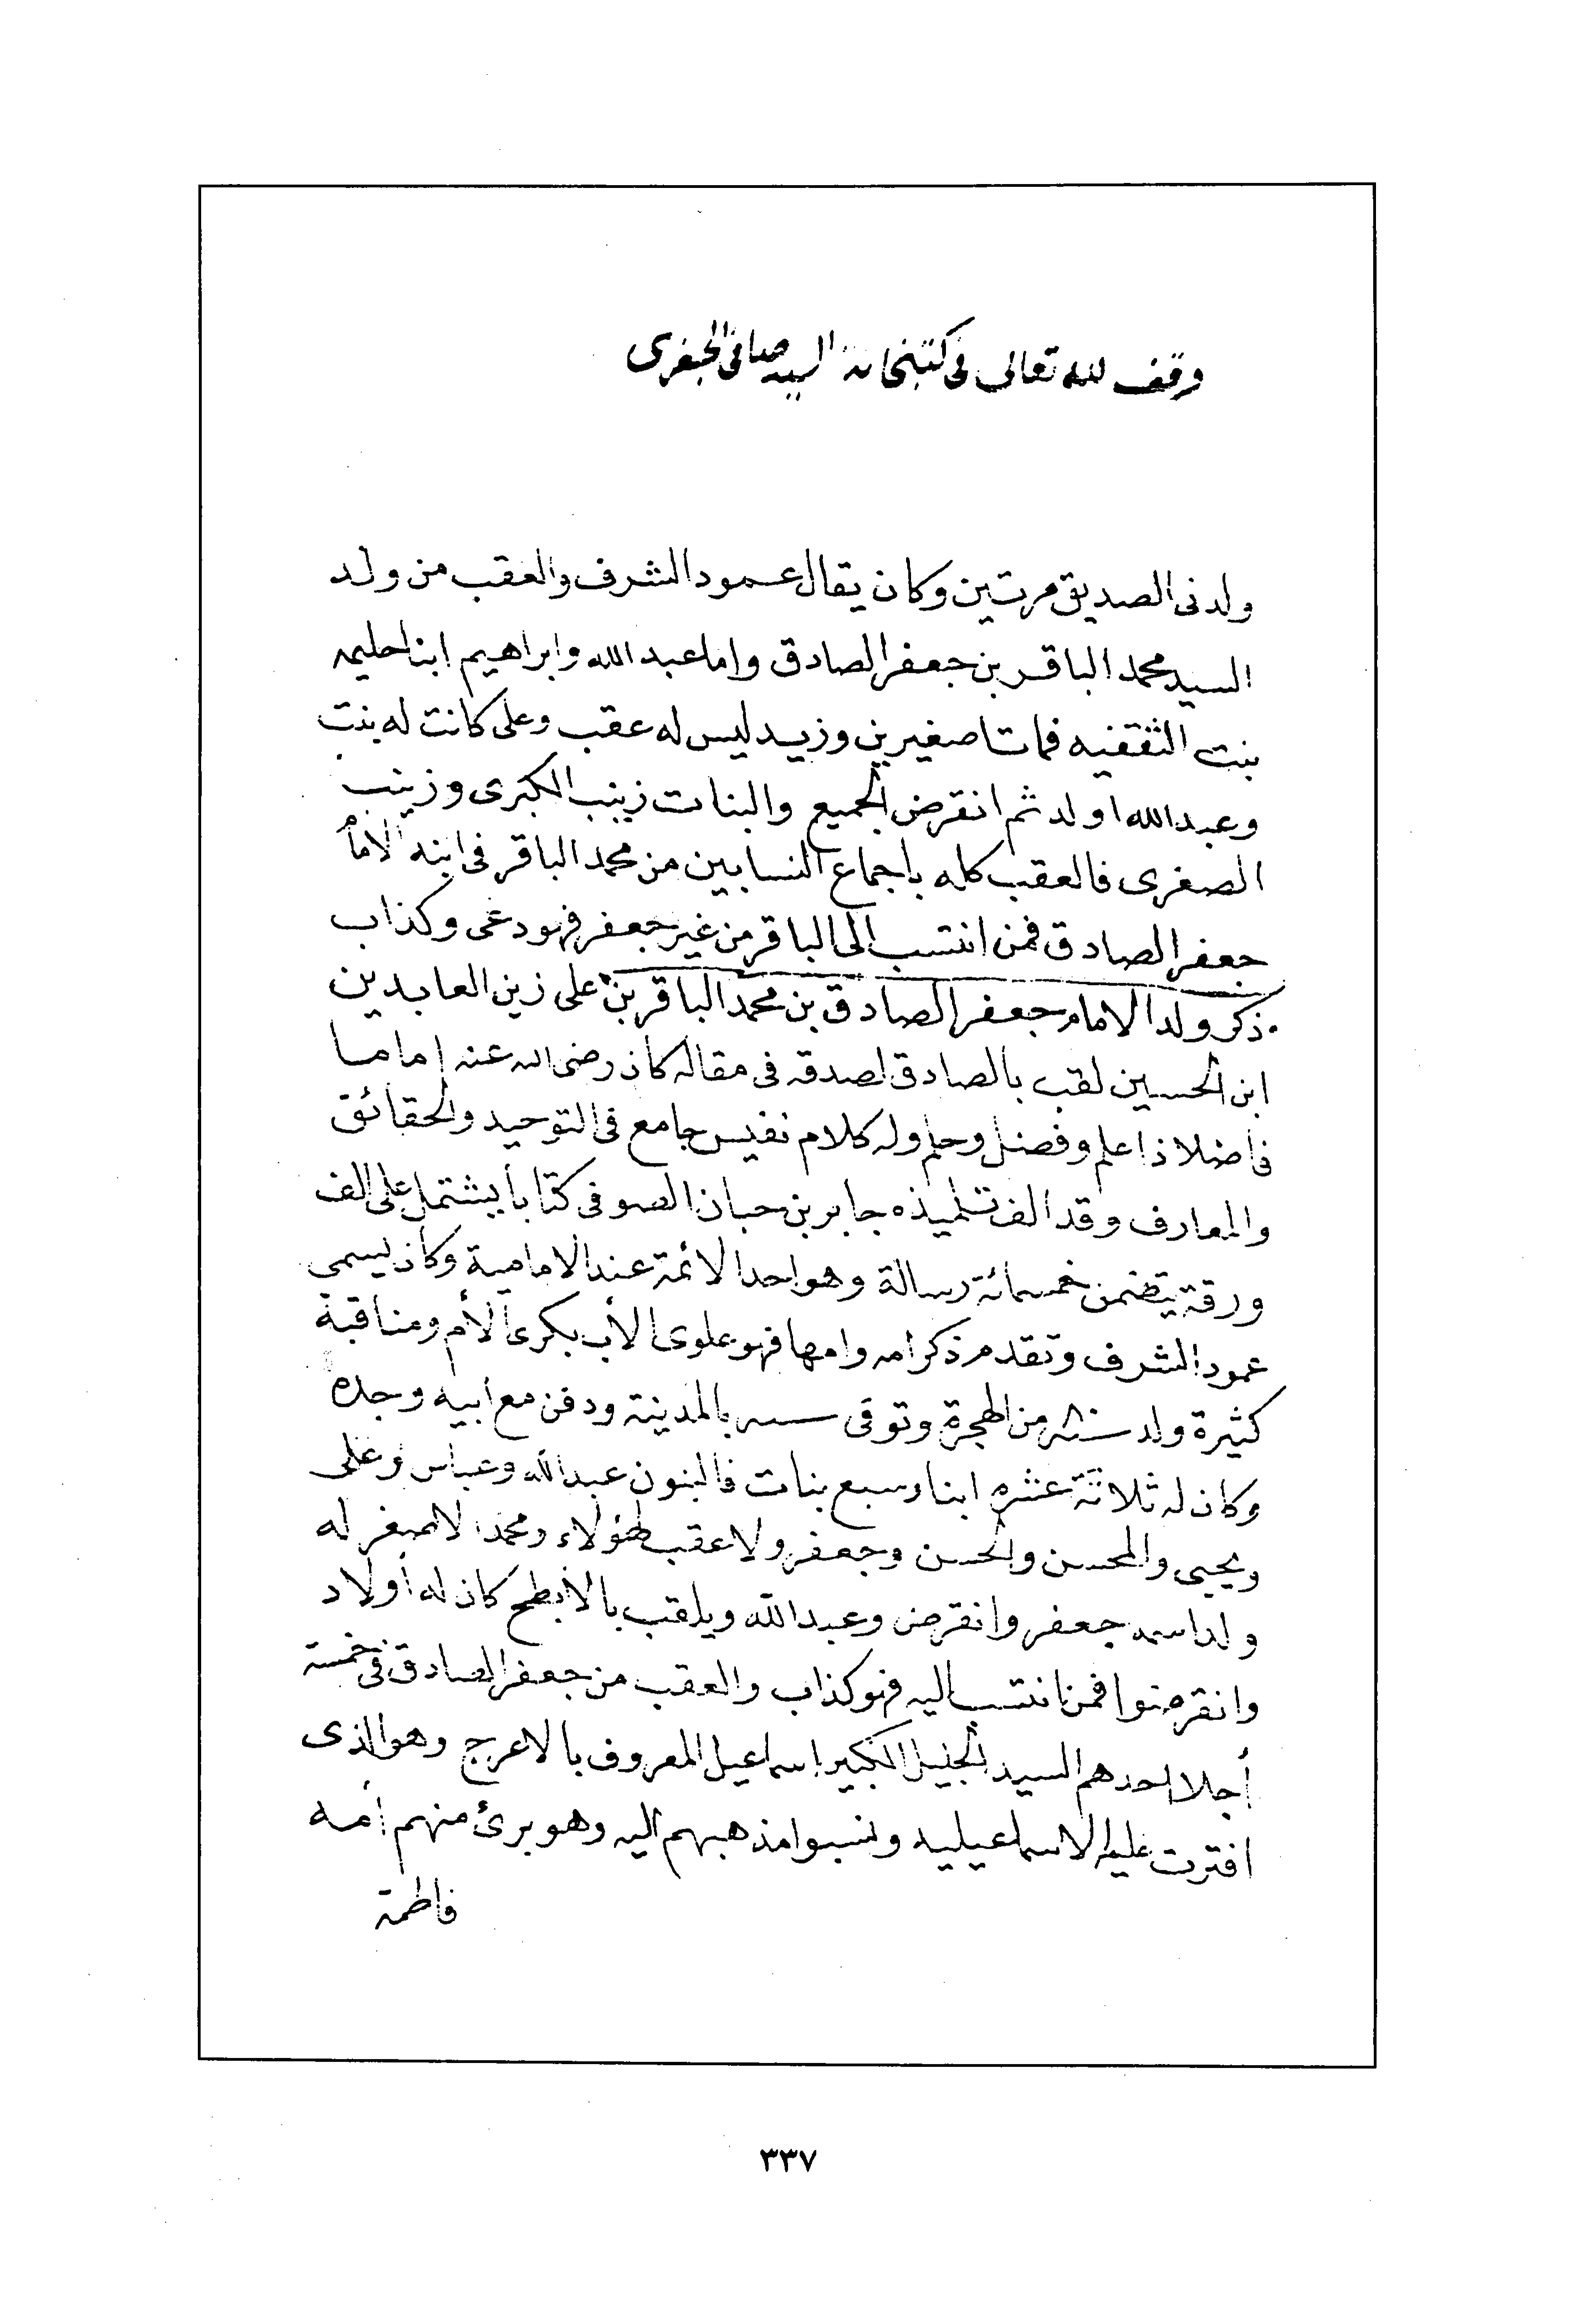 وقف لله تعالى في كتبخانة السيد صافي الجفري
ولدنى الصديق مرتين وكان يقال عمود الشرف والعقب من ولد
السيد محمد الباقر بن جعفر الصادق واما عبد الله وابراهيم ابنا حليمه
بنت الثقفيه فماتا صغيرين وزيد ليس له عقب وعلى كانت له بنت
وعبد الله اولد ثم انقرض الجميع والبنات زينب الكبرى وزينب
الصغرى فالعقب كله باجماع النسابين من محمد الباقر فى ابنه الامام
جعفر الصادق فمن انتسب الى الباقر من غير جعفر فهو دعى وكذاب
ذكر ولد الامام جعفر الصادق بن محمد الباقر بن على زين العابدين
ابن الحسين لقب بالصادق لصدقه فى مقاله كان رضى الله عنه إماما
فاضلا ذا علم وفضل وحلم وله كلام نفيس جامع فى التوحيد والحقائق
والمعارف وقد الف تلميذه جابر بن حبان الصوفى كتابا يشتمل على الف
ورقة يتضمن خمسمائة رسالة وهو احد الائمة عند الامامية وكان يسمى
عمود الشرف وتقدم ذكر امه وامها فهو علوى الأب بكرى الأم ومناقبة
كثيرة ولد سنة من الهجرة وتوفى بالمدينة ودفن مع أبيه وجده
وكان له ثلاثة عشره ابنا وسبع بنات فالبنون عبد الله وعباس وعلى
ويحيى والمحسن والحسن وجعفر ولا عقب لهؤلاء ومحمد الاصغر له
ولد اسمه جعفر وانقرض وعبد الله ويلقب بالأبطح كان له أولاد
وانقرضوا فمن انتسب اليه فهو كذاب والعقب من جعفر الصادق فى خمسة
أجلا احدهم السيد الجليل الكبير إسماعيل المعروف بالاعرج وهو الذى
افترت عليه الاسماعيليه ونسبوا مذهبهم اليه وهو برئ منهم أمه
فاطمة
٣٣٧